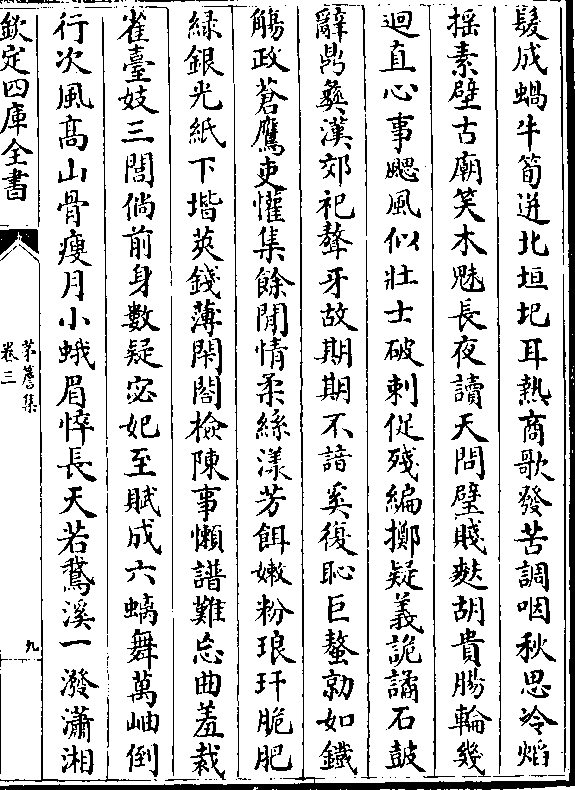 髮成蝸牛笥迸北垣圯耳熱商歌發苦調咽秋思冷熖
揺素壁古廟笑木魅長夜讀天問璧賤麩胡貴腸輪幾
迴直心事颸風似壯士破剌促殘編擲疑義詭譎石鼓
辭鼎彝漢郊祀聱牙故期期不諳奚復恥巨螯勍如鐵
觴政蒼鷹吏懽集餘閒情柔絲漾芳餌嫩粉琅玕脆肥
緑銀光紙下堦莢錢薄閑閤檢陳事懶譜難忘曲羞裁
雀臺妓三閭倘前身數疑宓妃至賦成六螭舞萬岫倒
行次風髙山骨瘦月小蛾眉悴長天若鵞溪一潑瀟湘
欽定四庫全書
茅簷集
卷三
九